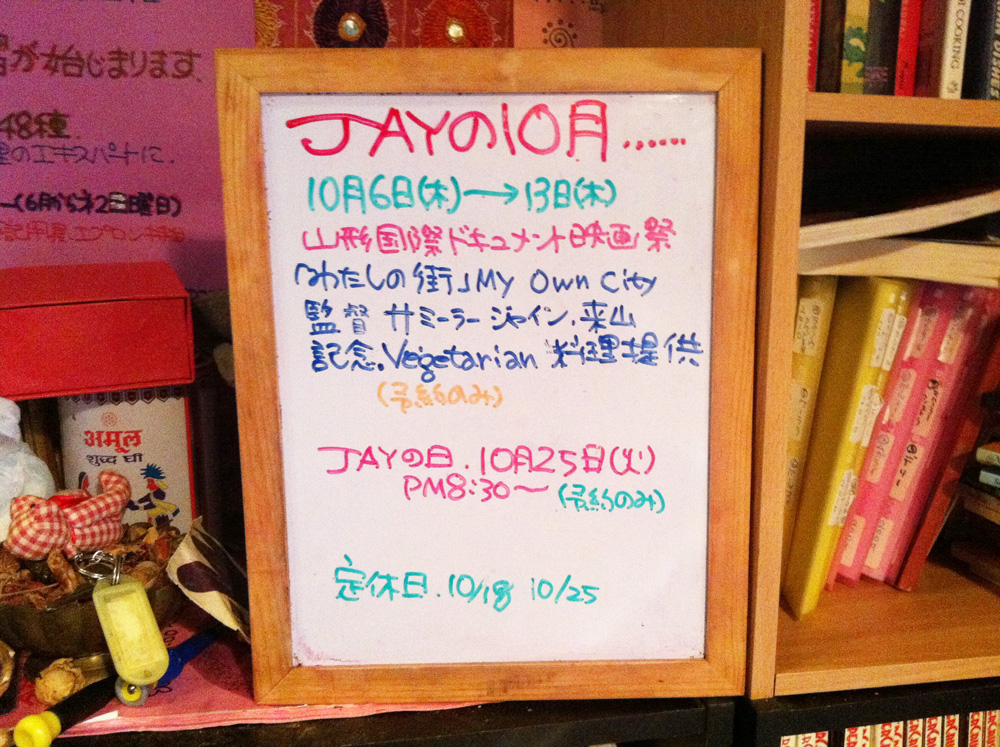 が始じまります
48種
のエキスパートに.
(6月から第2日曜日)
JAYの10月......
10月6日(木)→13日(木)
山形国際ドキュメント映画祭
「わたしの街」My Own City
監督 サミーラージャイン.来山
記念.Vegetarian 料理提供
(予約のみ)
JAYの日.10月25日(火)
PM8:30〜(予約のみ)
定休日.10/18 10/25
अमूल
शुद्ध घी
COOKING